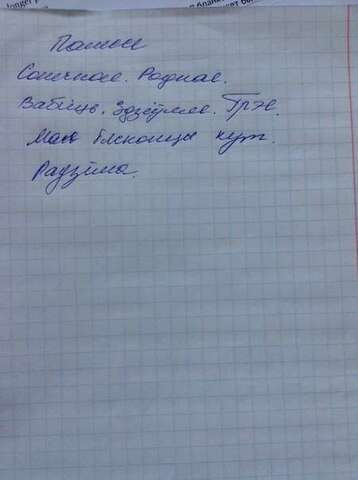 longer
Палессе
Сонечнае. Роднае.
Вабіць. Здзіўляе. Грэе.
бясконцы кут.
Радзіма.